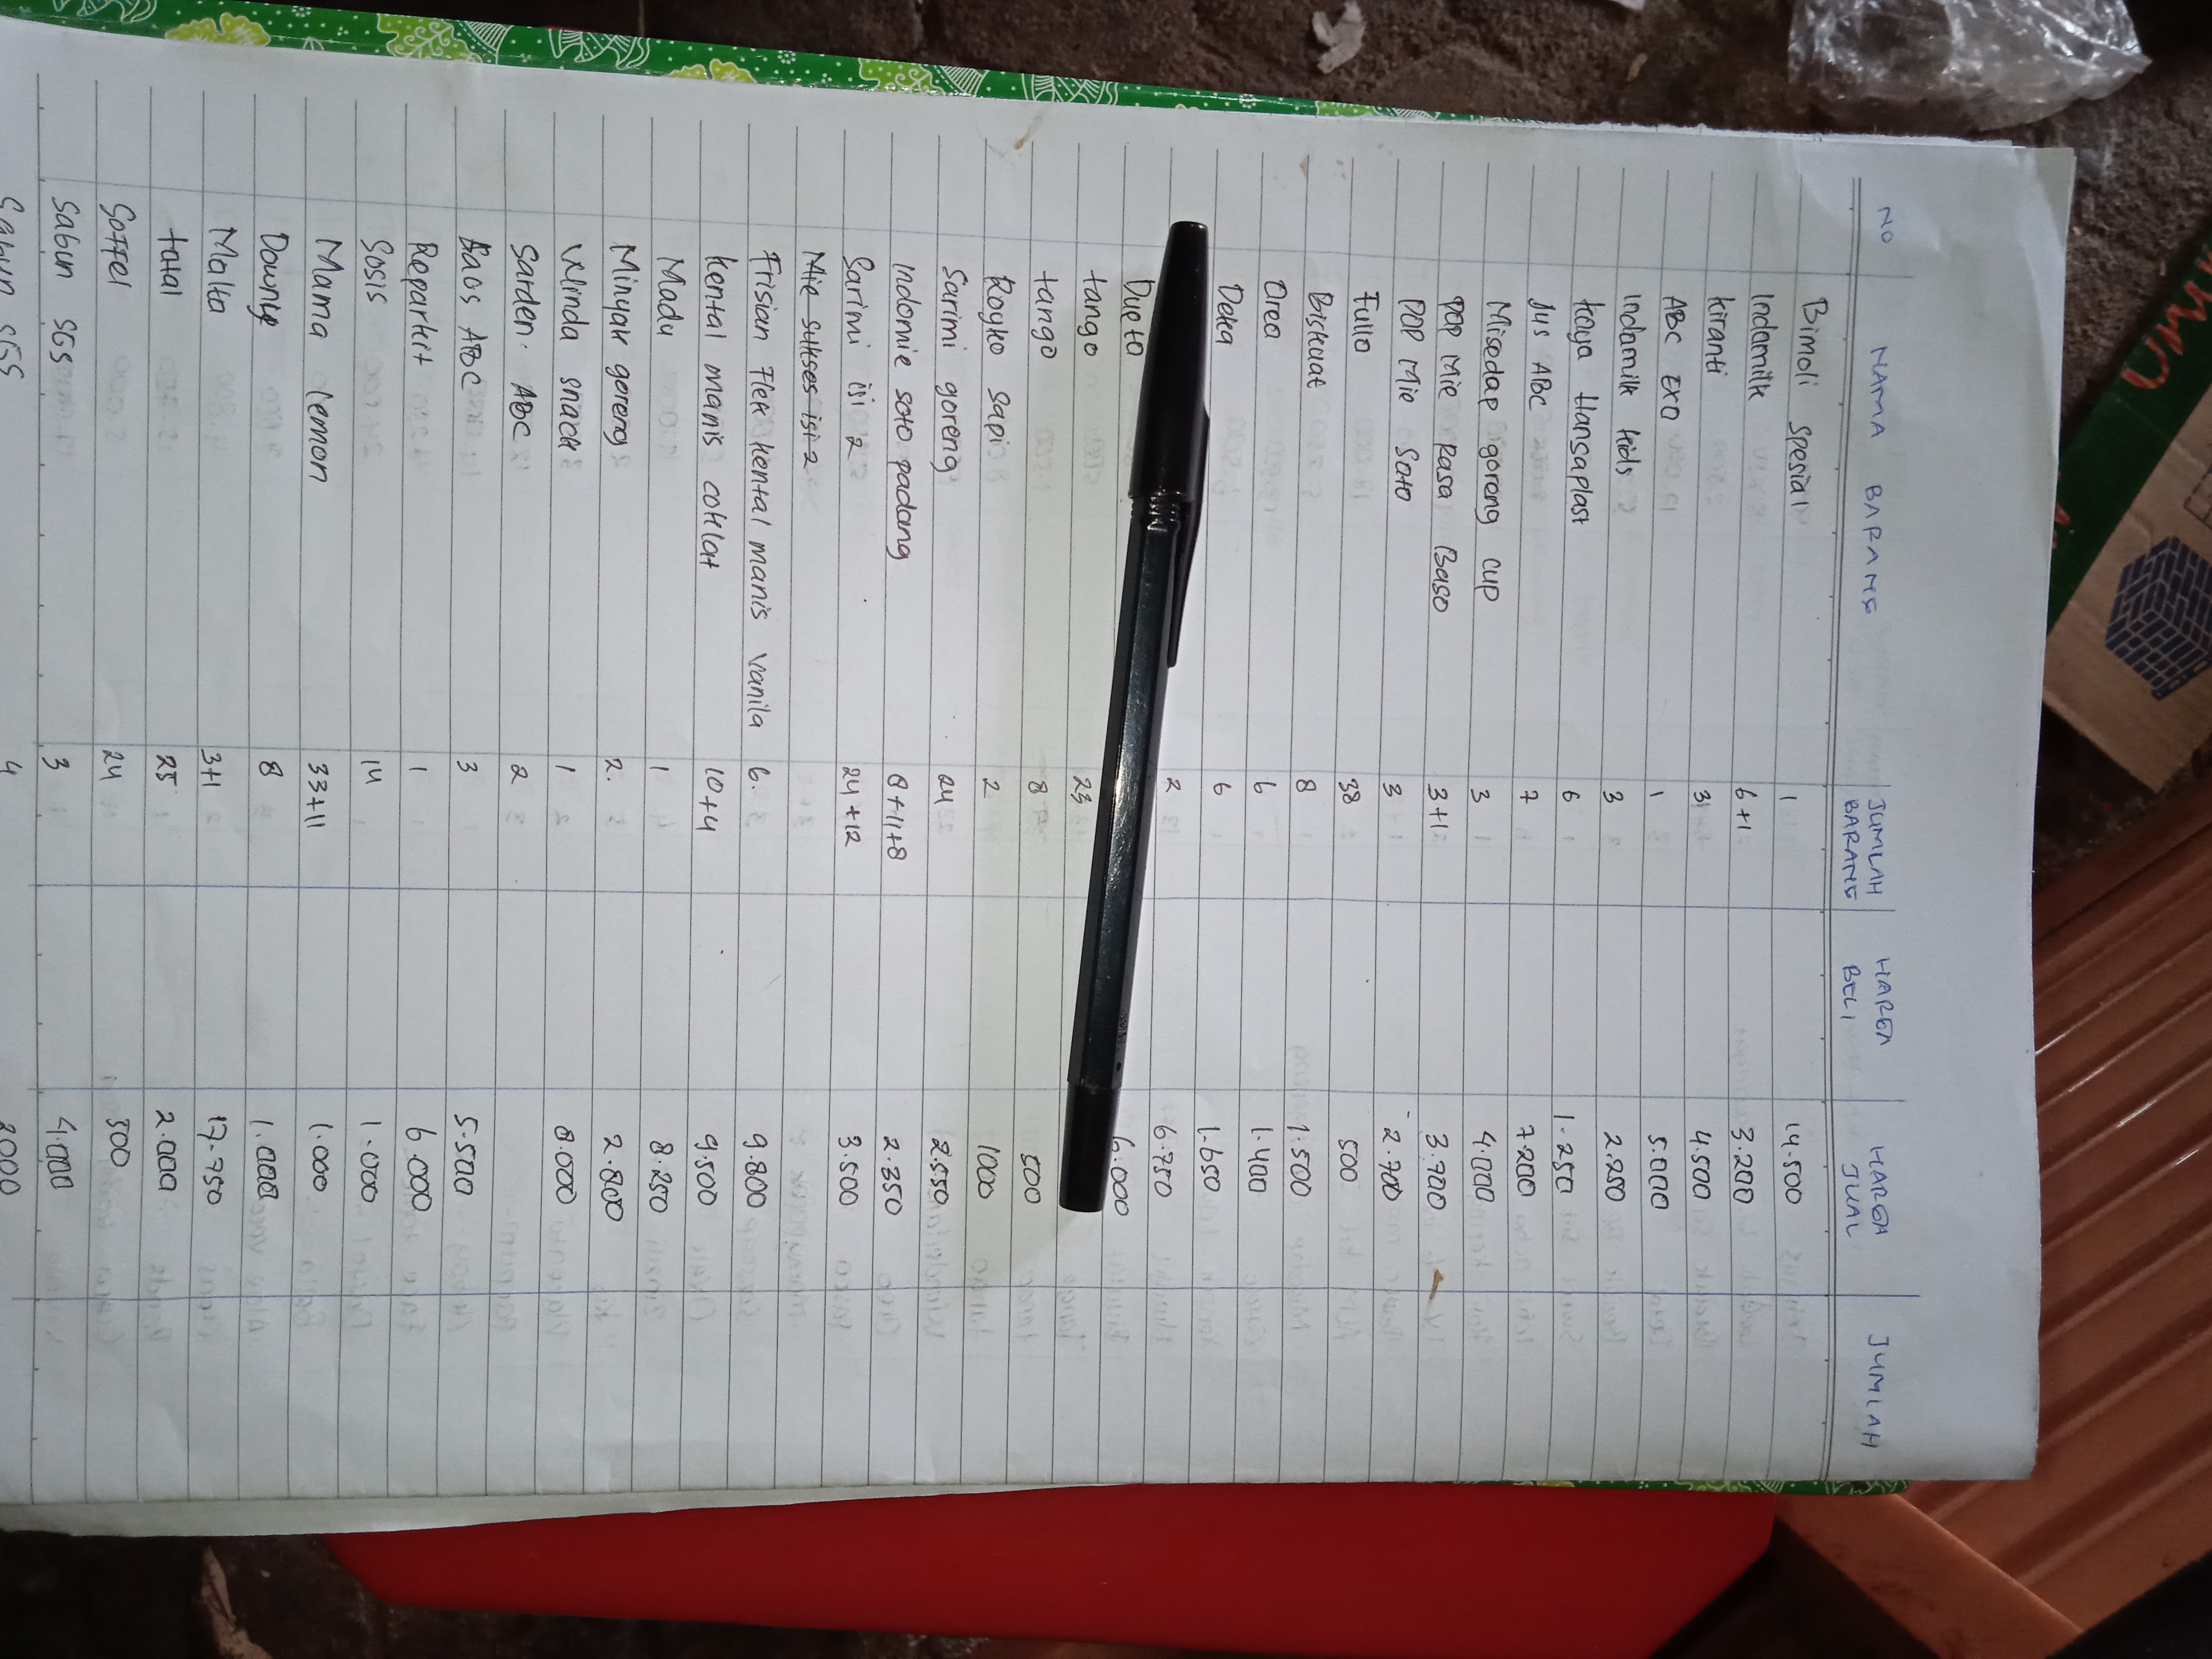 NO NAMA BARANG JUMLAH BARANG HARGA BELI HARGA JUAL JUMLAH
Bimoli spesial 1 14.500
Indamilk 6+1 3.200
Kiranti 3 4.500
ABC EXO 1 5.000
Indamilk kids 3 2.250
Koyo Hansaplast 6 1.250
Jus ABC 7 7.200
Misedap goreng cup 3 4.000
POP Mie Rasa Baso 3+1 3.700
POP Mie Soto 3 2.700
Fullo 38 500
Biskuat 8 1.500
Oreo 6 1.400
Deka 6 1.650
2 6.750
Dueto 6.000
tango 23
tango 8 500
Royko sapi 2 1000
Sarimi goreng 24 2.550
Indomie soto padang 8+11+8 2.350
Sarimi isi 2 24+12 3.500
Mie sukses isi 2
Frisian Flek kental manis vanila 6. 9.800
Kental manis coklat 10+4 9.500
Madu 1 8.250
Minyak goreng 2. 2.800
Winda snack 1 8.000
Sarden. ABC 2
Saos ABC 3 5.500
Reparkit 1 6.000
Sosis 14 1.000
Mama lemon 33+11 1.000
Downy 8 1.000
Malto 3+1 17.750
total 25 2.000
Soffel 24 500
Sabun SGS 3 4.000
Sabun 4